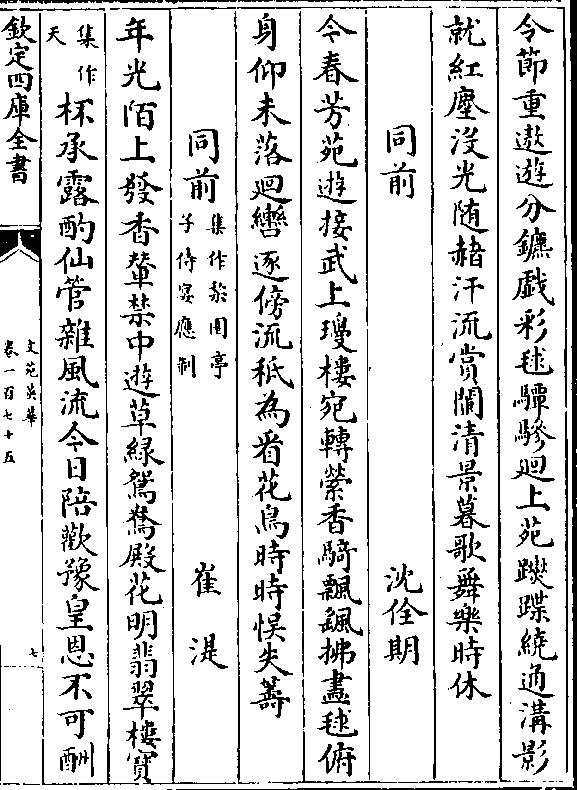 令節重遨遊分鑣戲彩毬驔驂迴上苑蹀躞繞通溝影
就紅塵沒光随赭汗流賞闌清景暮歌舞樂時休
同前　沈佺期
今春芳苑遊接武上瓊樓宛轉縈香騎飄颻拂畫毬俯
身仰未落迴轡逐傍流秖為看花鳥時時悮失籌
同前集作梨園亭子侍宴應制　崔湜
年光陌上發香輦禁中遊草緑鴛鴦殿花明翡翠樓寳
集作天杯承露酌仙管雜風流今日陪歡豫皇恩不可酬
欽定四庫全書
文苑英華
卷一百七十五
七